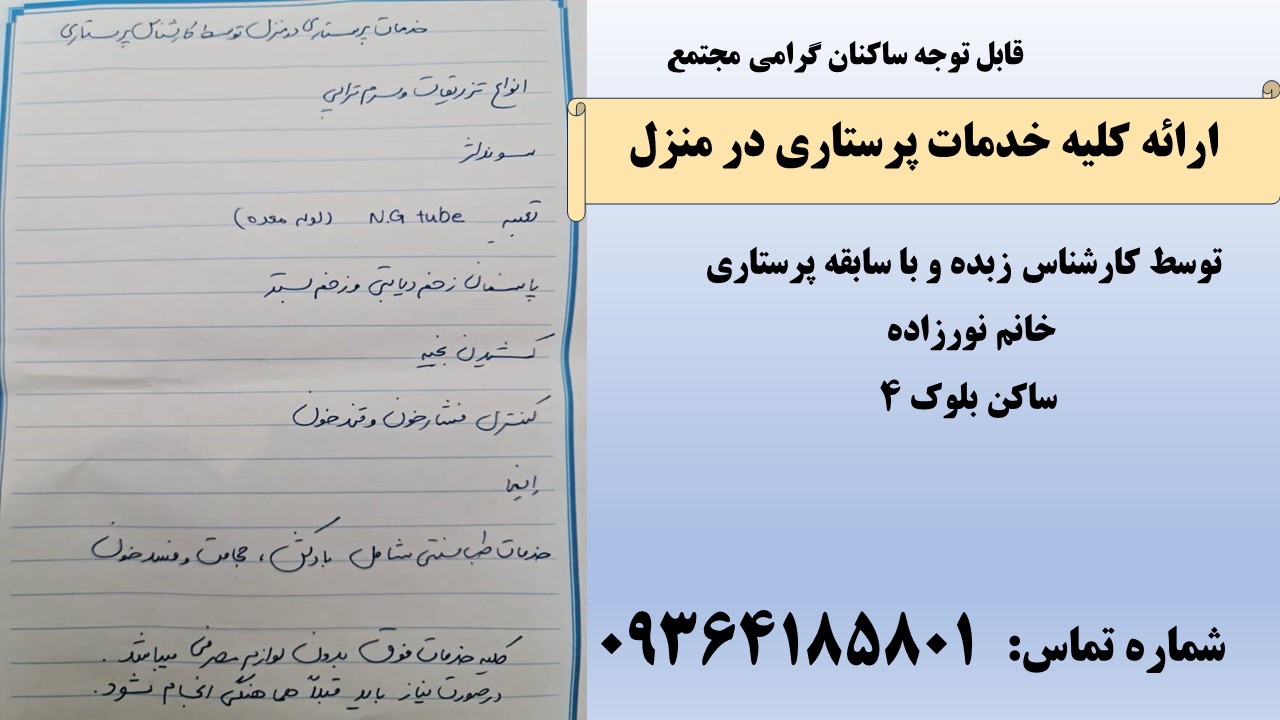 قابل توجه ساکنان گرامی مجتمع
ارائه کلیه خدمات پرستاری در منزل
توسط کارشناس زبده و با سابقه پرستاری
خانم نورزاده
ساکن بلوک ۴
شماره تماس: ۰۹۳۶۴۱۸۵۸۰۱
خدمات پرستاری در منزل توسط کارشناس پرستاری
انواع تزریقات و سرم تراپی
سونداژ
تعبیه N.G tube (لوله معده)
پانسمان زخم دیابتی و زخم بستر
کشیدن بخیه
کنترل فشار خون و قند خون
انما
خدمات طب سنتی شامل بادکش، حجامت و فصد خون
کلیه خدمات فوق بدون لوازم مصرفی میباشد.
در صورت نیاز باید قبلاً هماهنگی انجام شود.